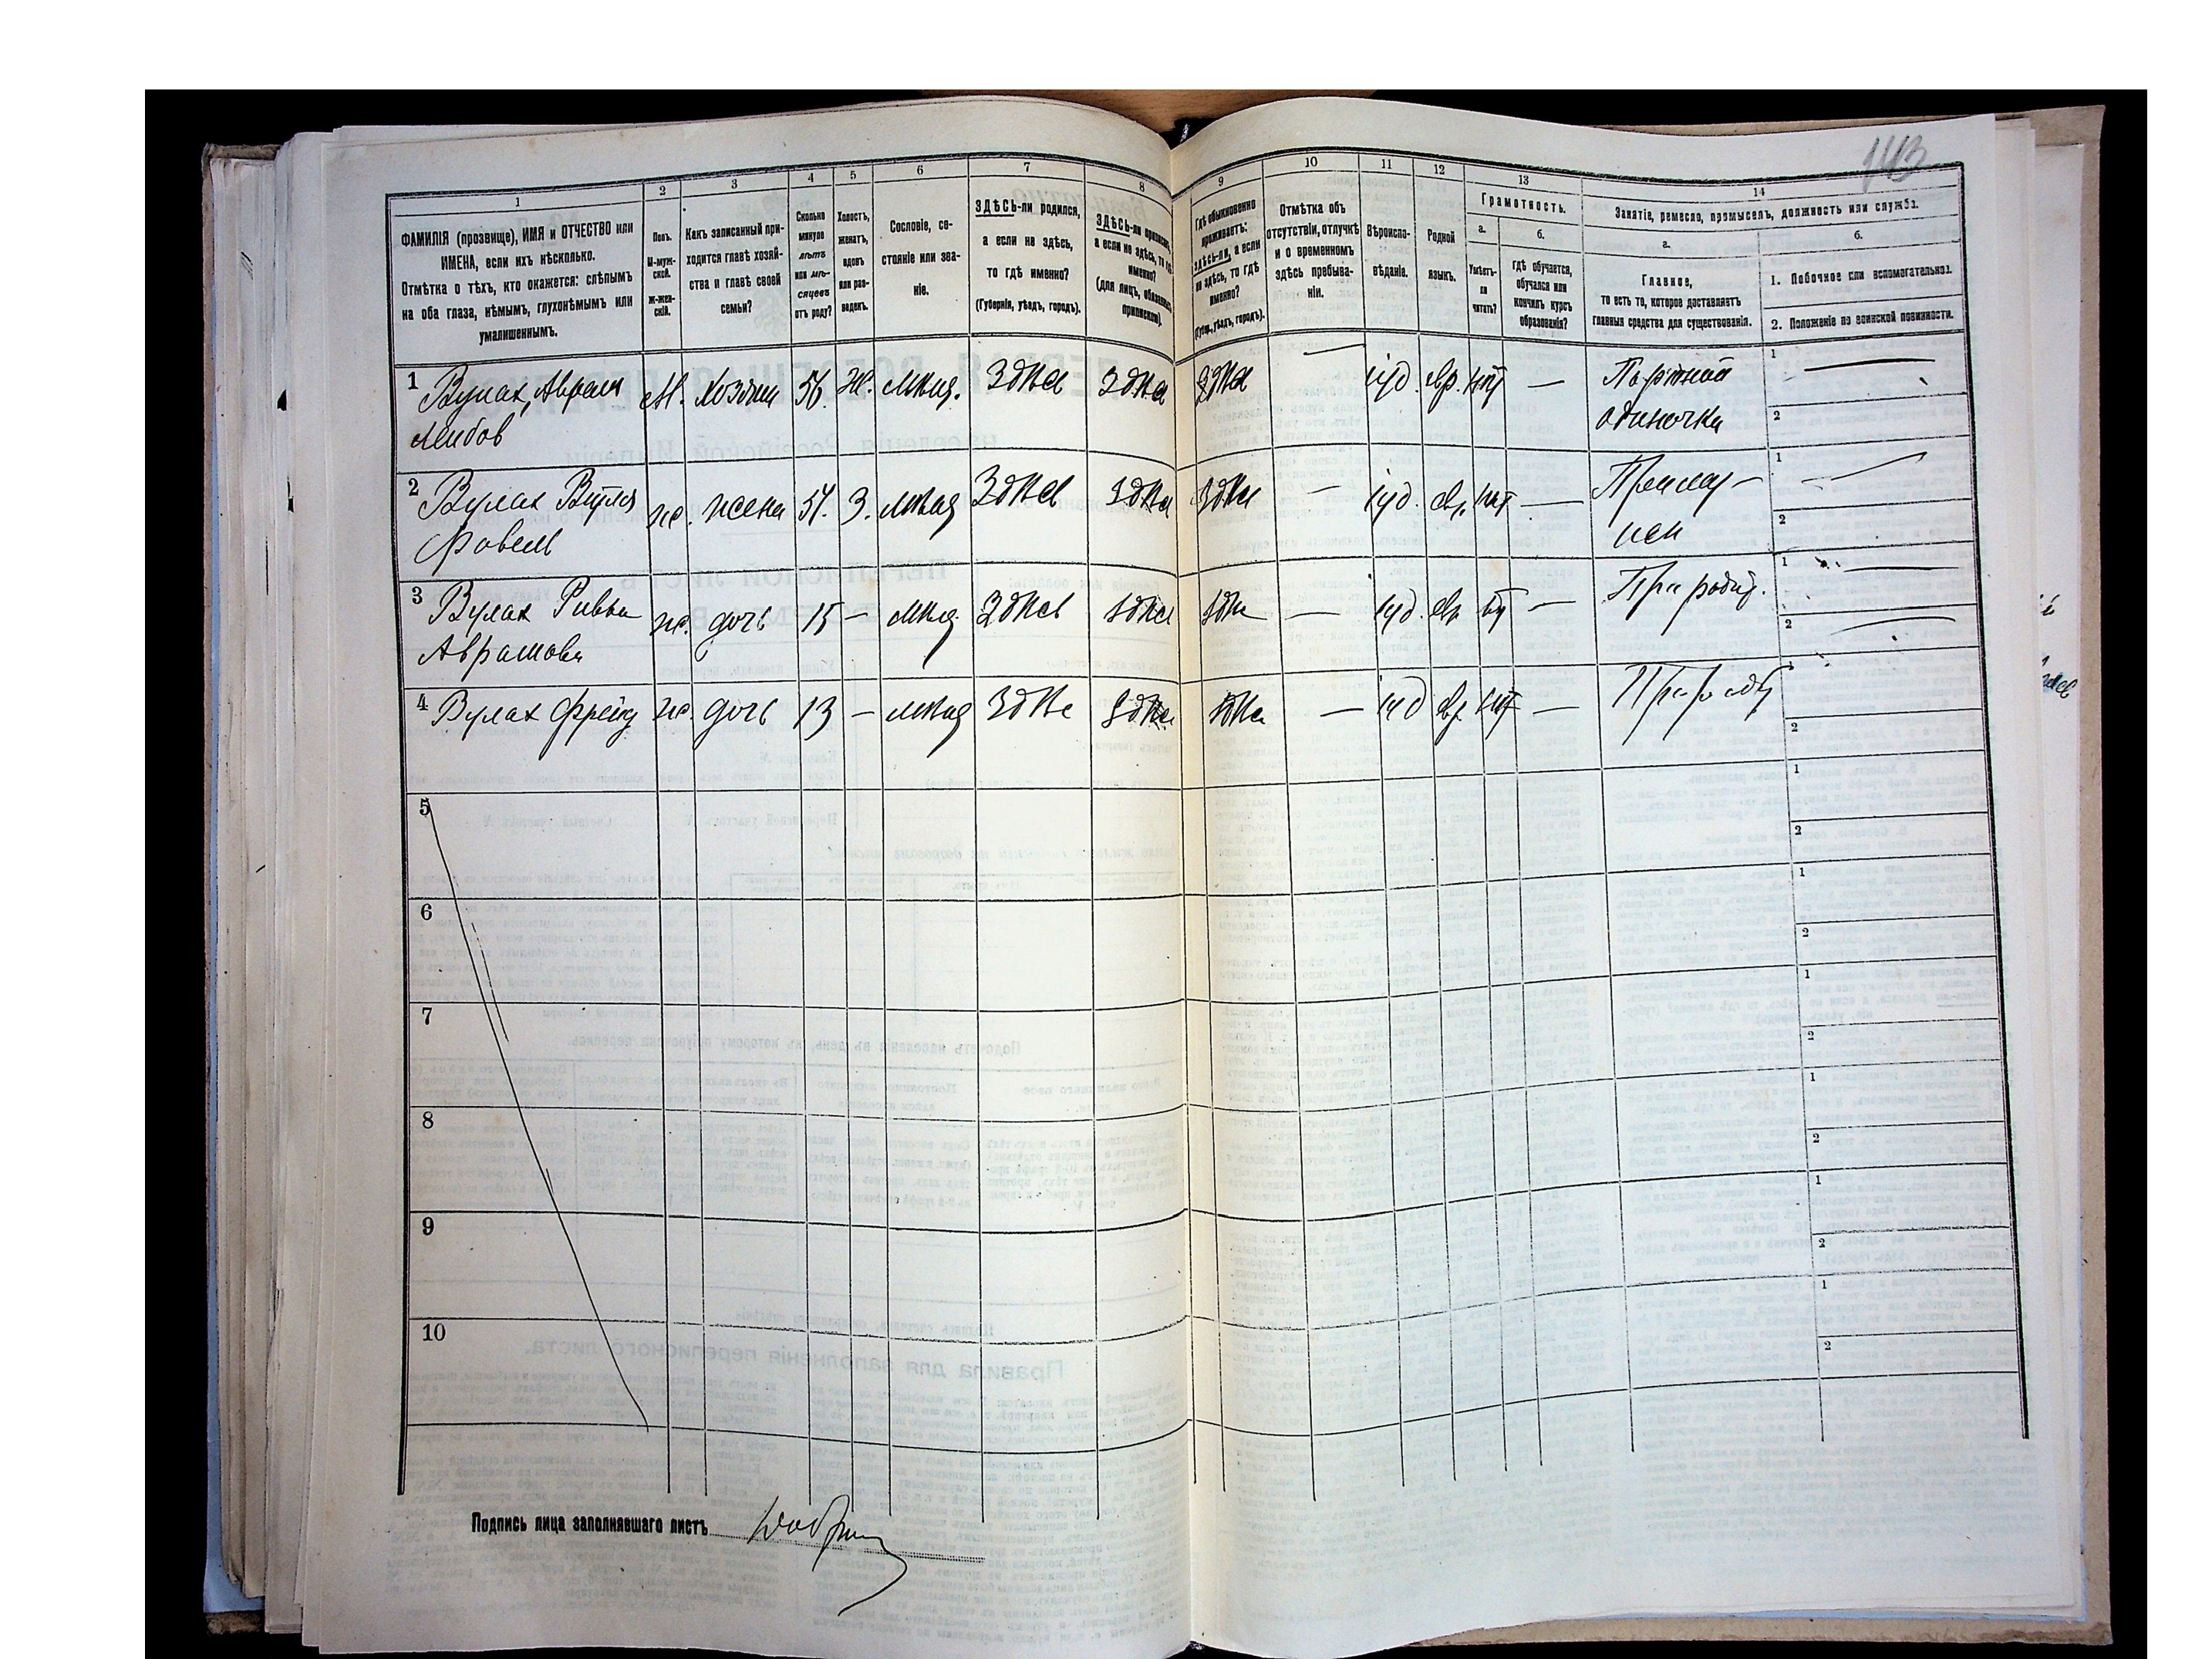 143
1
2
3
4
5
6
7
8
9
10
11
12
13
14
ФАМИЛІЯ (прозвище), ИМЯ и ОТЧЕСТВО или
ИМЕНА, если ихъ нѣсколько.
Отмѣтка о тѣхъ, кто окажется: слѣпымъ
на оба глаза, нѣмымъ, глухонѣмымъ или
умалишеннымъ.
Полъ.
М-муж-
ской.
Ж-жен-
скій.
Какъ записанный при-
ходится главѣ хозяй-
ства и главѣ своей
семьи?
Сколько
минуло
лѣтъ
или мѣ-
сяцевъ
отъ роду?
Холостъ,
женатъ,
вдовъ
или раз-
веденъ.
Сословіе, со-
стояніе или зва-
ніе.
ЗДѢСЬ-ли родился,
а если не здѣсь,
то гдѣ именно?
(Губернія, уѣздъ, городъ).
ЗДѢСЬ-ли приписанъ,
а если не здѣсь, то гдѣ
именно?
(для лицъ, обязанныхъ
припискою).
Гдѣ обыкновенно
проживаетъ:
здѣсь-ли, а если
не здѣсь, то гдѣ
именно?
(Губерн., уѣздъ, городъ).
Отмѣтка объ
отсутствіи, отлучкѣ
и о временномъ
здѣсь пребыва-
ніи.
Вѣроиспо-
вѣданіе.
Родной
языкъ.
Грамотность.
а.
Умѣетъ-
ли
читать?
б.
Гдѣ обучается,
обучался или
кончилъ курсъ
образованія?
Занятіе, ремесло, промыселъ, должность или служба.
а.
Главное,
то есть то, которое доставляетъ
главныя средства для существованія.
б.
1. Побочное или вспомогательное.
2. Положеніе по воинской повинности.
1 Вулах, Аврам М. Хозяин 56. Ж. мѣщ. Здѣсь Здѣсь Здѣсь — іуд. евр. нѣт — Портной 1 —
Лейбов одиночка 2
2 Вулах ж. жена 54. З. мѣщ Здѣсь Здѣсь Здѣсь — іуд. евр. нѣт — При му- 1 —
жѣ 2
3 Вулах Ривка ж. дочь 15 — мѣщ. Здѣсь Здѣсь Здѣсь — іуд. евр нѣт — При родит. 1 —
Абрамова 2 —
4 Вулах Фрейд ж. дочь 13 — мѣщ Здѣсь Здѣсь Здѣсь — іуд евр. нѣт — При род 1
2
5 1
2
6 1
2
7 1
2
8 1
2
9 1
2
10 1
2
Подпись лица заполнявшаго листъ